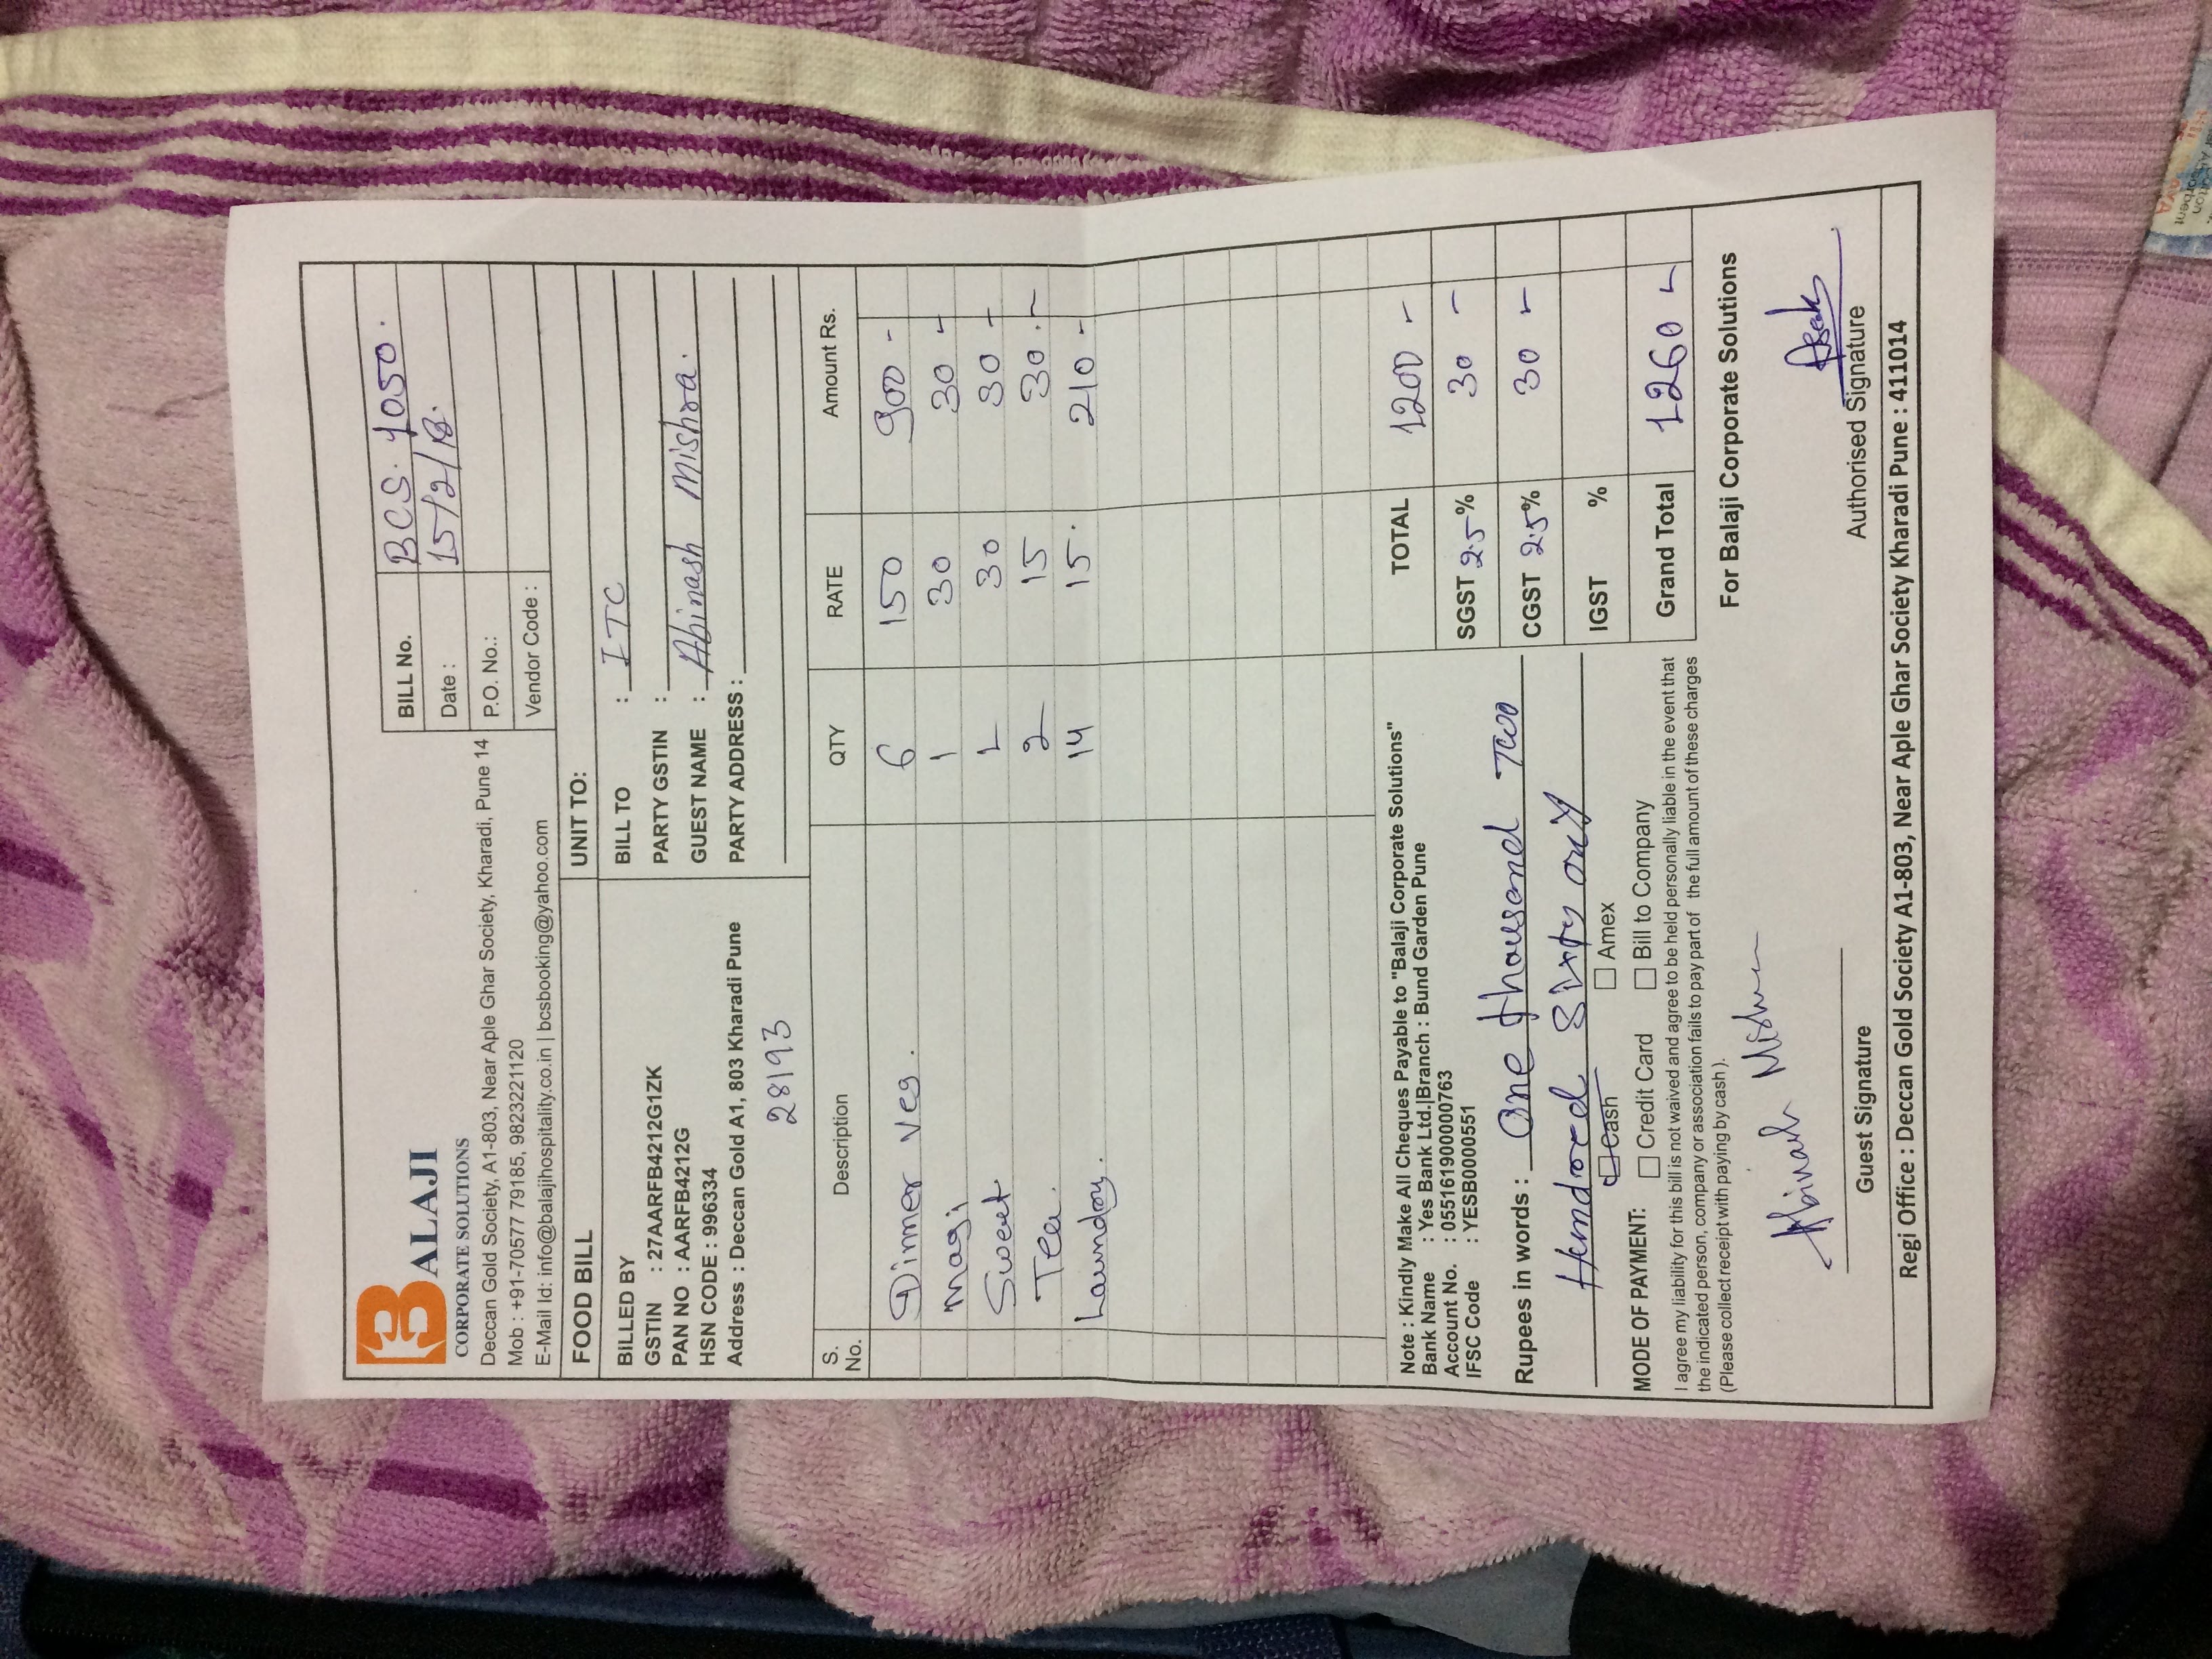 BALAJI
CORPORATE SOLUTIONS
Deccan Gold Society, A1-803, Near Aple Ghar Society, Kharadi, Pune 14
Mob : +91-70577 79185, 9823221120
E-Mail Id: info@balajihospitality.co.in | bcsbooking@yahoo.com
BILL No. BCS. 1050.
Date : 15/2/18.
P.O. No.:
Vendor Code :
FOOD BILL
UNIT TO:
BILLED BY
GSTIN : 27AARFB4212G1ZK
PAN NO : AARFB4212G
HSN CODE : 996334
Address : Deccan Gold A1, 803 Kharadi Pune
28193
BILL TO : ITC
PARTY GSTIN :
GUEST NAME : Abinash Mishra.
PARTY ADDRESS :
S. No. Description QTY RATE Amount Rs.
Dinner veg. 6 150 900 -
Magi 1 30 30 -
Sweet 1 30 30 -
Tea. 2 15 30.-
Laundry. 14 15. 210 -
Note : Kindly Make All Cheques Payable to "Balaji Corporate Solutions"
Bank Name : Yes Bank Ltd.|Branch : Bund Garden Pune
Account No. : 055161900000763
IFSC Code : YESB0000551
Rupees in words : One thousand Two
Hundred Sixty only
TOTAL 1200 -
SGST 2.5% 30 -
CGST 2.5% 30 -
IGST %
Grand Total 1260 -
Cash Amex
MODE OF PAYMENT: Credit Card Bill to Company
I agree my liability for this bill is not waived and agree to be held personally liable in the event that
the indicated person, company or association fails to pay part of the full amount of these charges
(Please collect receipt with paying by cash ).
For Balaji Corporate Solutions
Abinash Mishra
Guest Signature
Authorised Signature
Regi Office : Deccan Gold Society A1-803, Near Aple Ghar Society Kharadi Pune : 411014